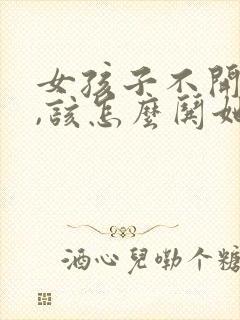 女孩子不開
,該怎麼鬨她
酒心兒嘞个糖